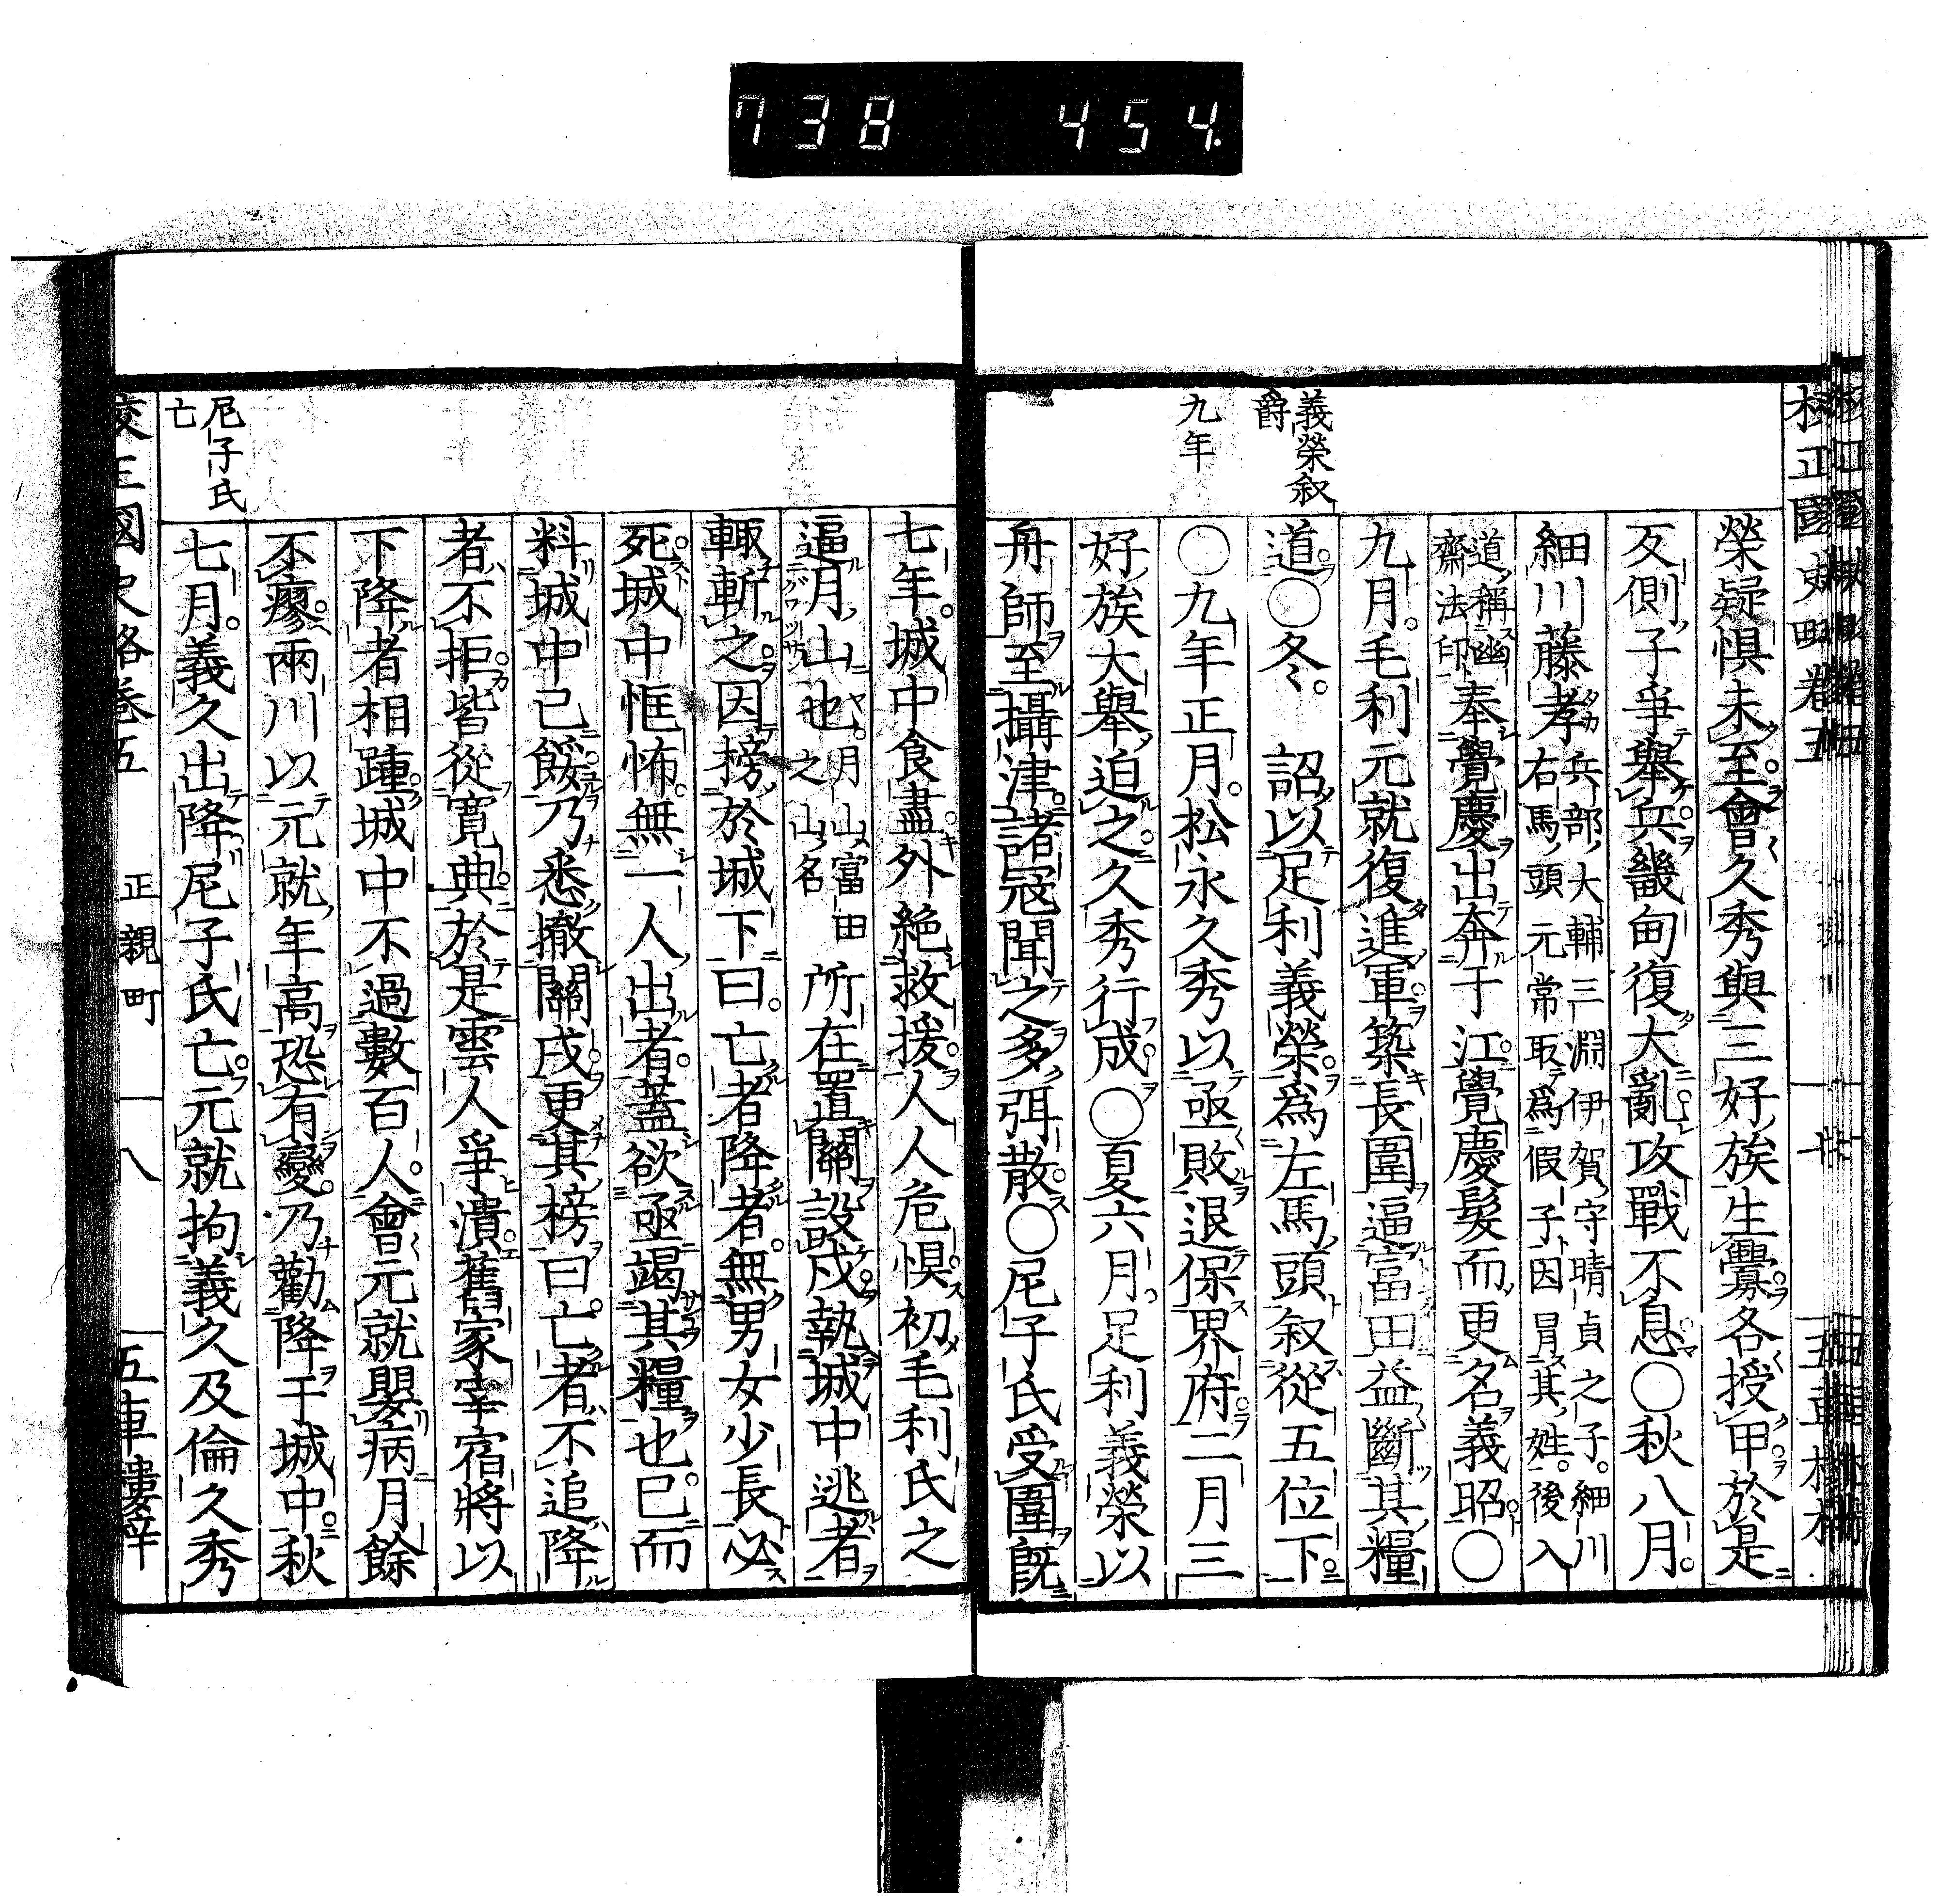 738 454.
榮疑惧未至會久秀與三好族生釁各授甲於是
反側子爭舉兵畿甸復大亂攻戰不息○秋八月
細川藤孝兵部大輔三淵伊賀守晴貞之子細川右馬頭元常取爲假子因冒其姓後入
道稱幽齋法印奉覺慶出奔于江覺慶髮而更名義昭○
九月毛利元就復進軍築長圍逼富田益斷其糧
義榮叙爵
道○冬 詔以足利義榮爲左馬頭叙從五位下
九年
○九年正月松永久秀以亟敗退保界府二月三
好族大舉迫之久秀行成○夏六月足利義榮以
舟師至攝津諸冦聞之多弭散○尼子氏受圍既
七年城中食盡外絶救援人人危惧初毛利氏之
逼月山也月山富田之山名所在置關設戍執城中逃者
輙斬之因榜於城下曰亡者降者無男女少長必
死城中恇怖無一人出者蓋欲亟竭其糧也已而
料城中已餒乃悉撤關戍更其榜曰亡者不追降
者不拒皆從寛典於是雲人爭潰舊家宰宿將以
下降者相踵城中不過數百人會元就嬰病月餘
不瘳兩川以元就年高恐有變乃勸降于城中秋
尼子氏亡
七月義久出降尼子氏亡元就拘義久及倫久秀
正親町 八 五車樓梓